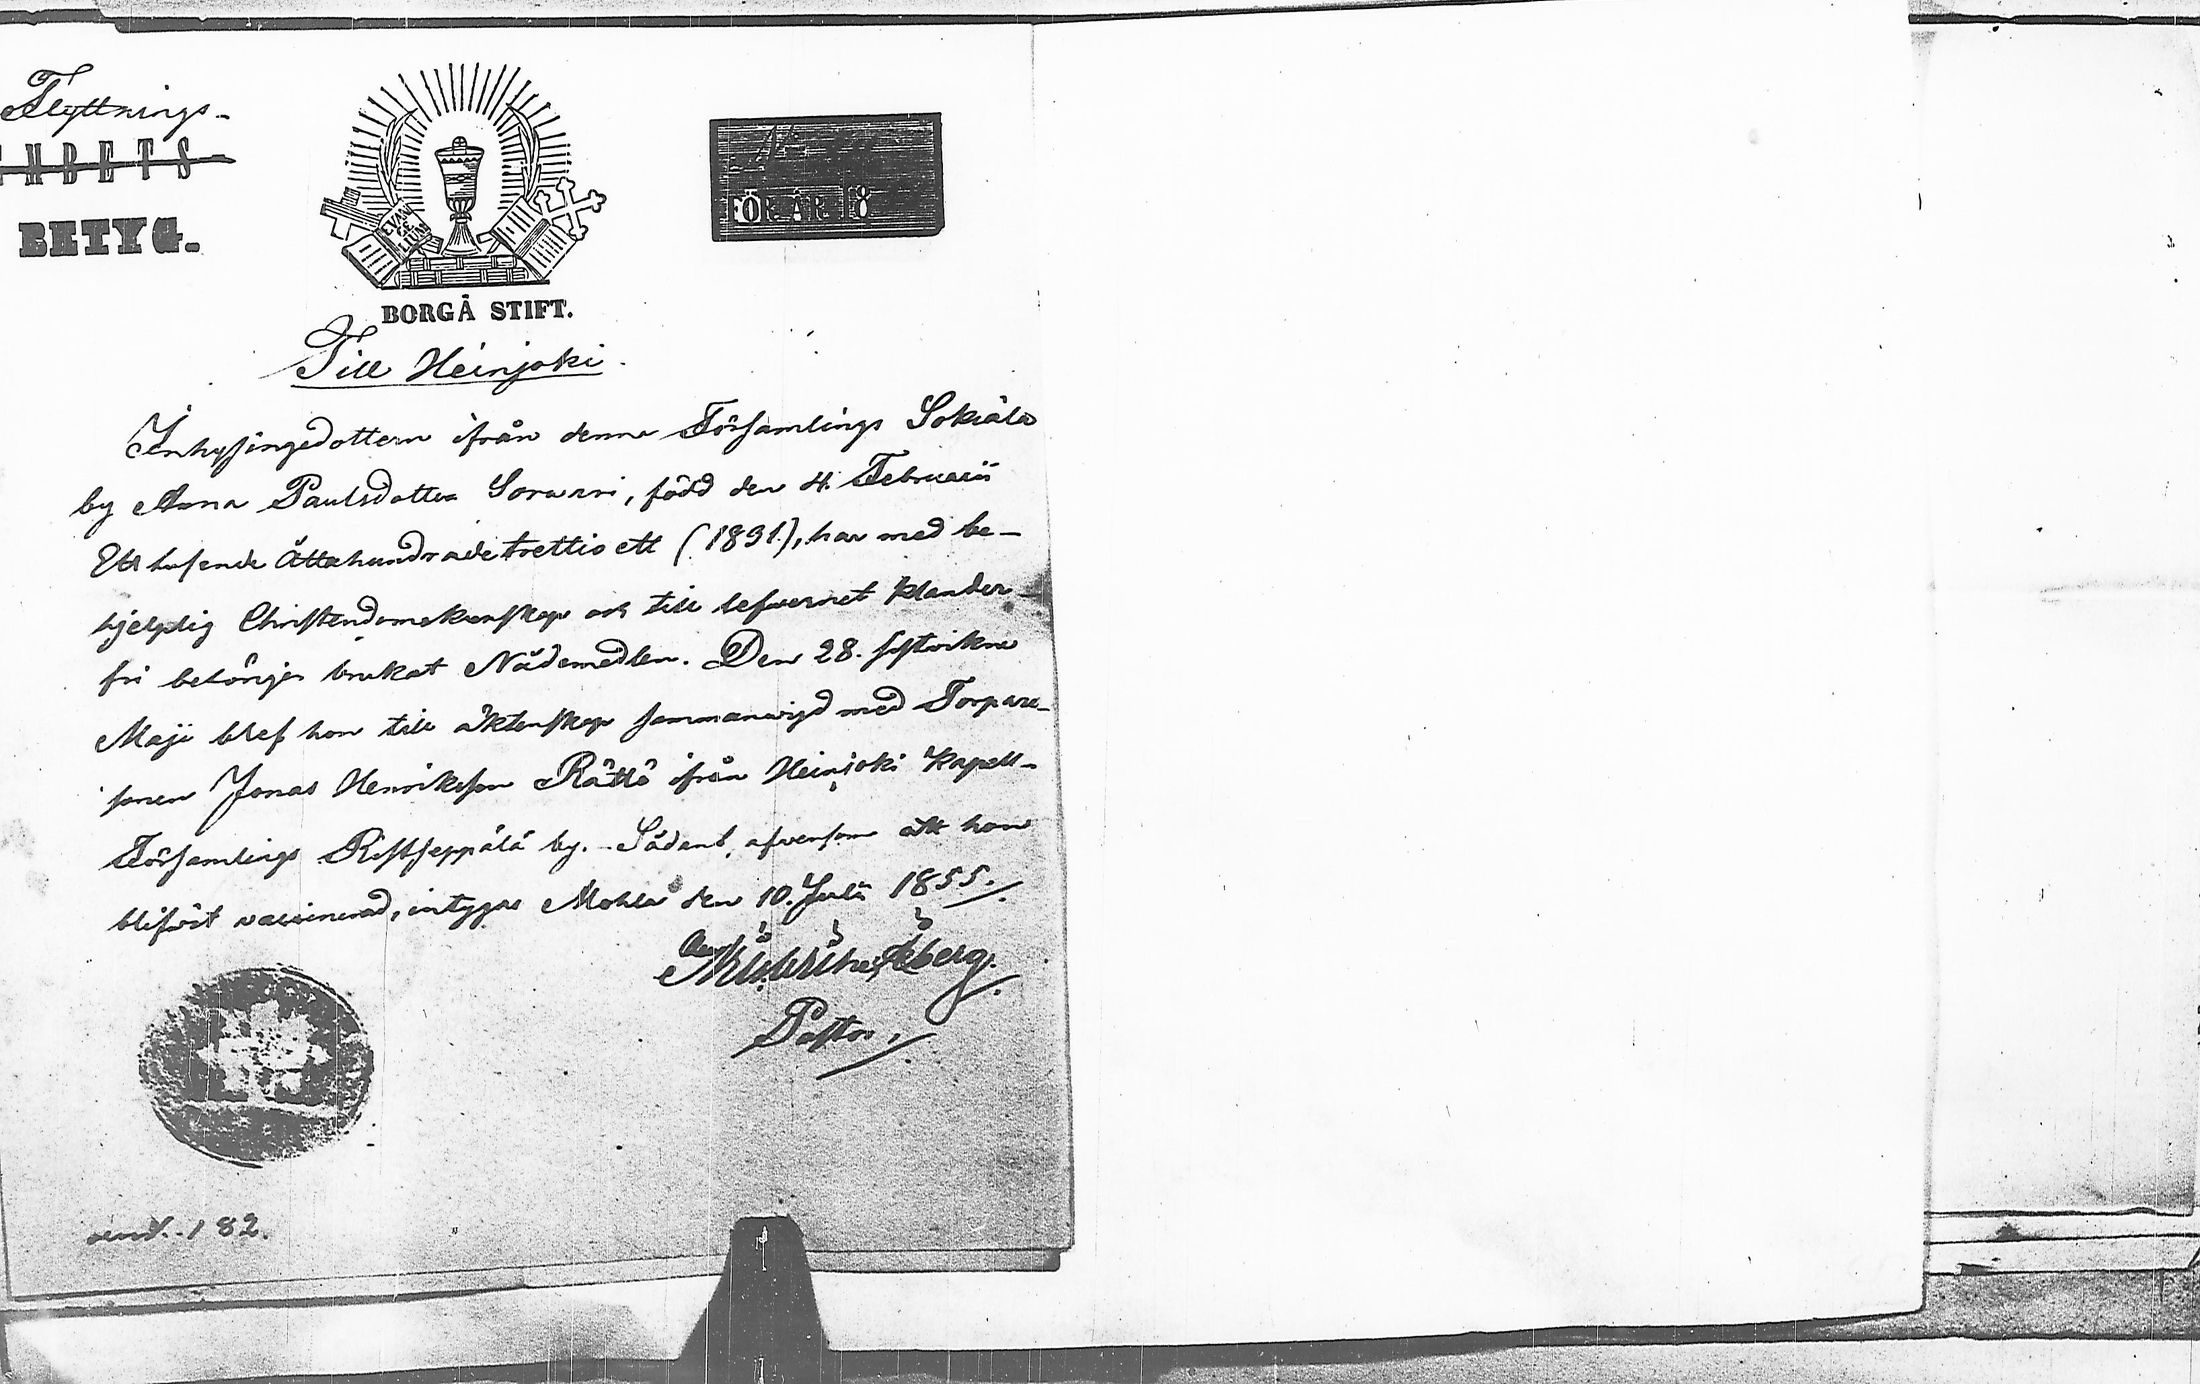 Flyttnings-
EHBETS-
BETYG.
EVAN
GE
LIUM
FÖR ÅR 18
BORGÅ STIFT.
Till Heinjoki.
Inhysingedottern ifrån denna Församlings Sokiala
by Anna Paulsdotter Sorwari, född den 4. Februarii
Ett tusende Åttahundradetrettio ett (1831.), har med be-
hjelplig Christendomskunskap och till lefvernet klander-
fri betörjer brukat Nådemedlen. Den 28. sistvikne
Maji blef hon till äktenskap sammanvigd med Torpare-
sonen Jonas Henriksson Rättö ifrån Heinjoki Kapell-
Församlings Ristseppälä by. Sådant, äfvensom att hon
blifvit vaccinerad, intygas Mohla den 10. Julii 1855.
berg.
Pastor.
182.